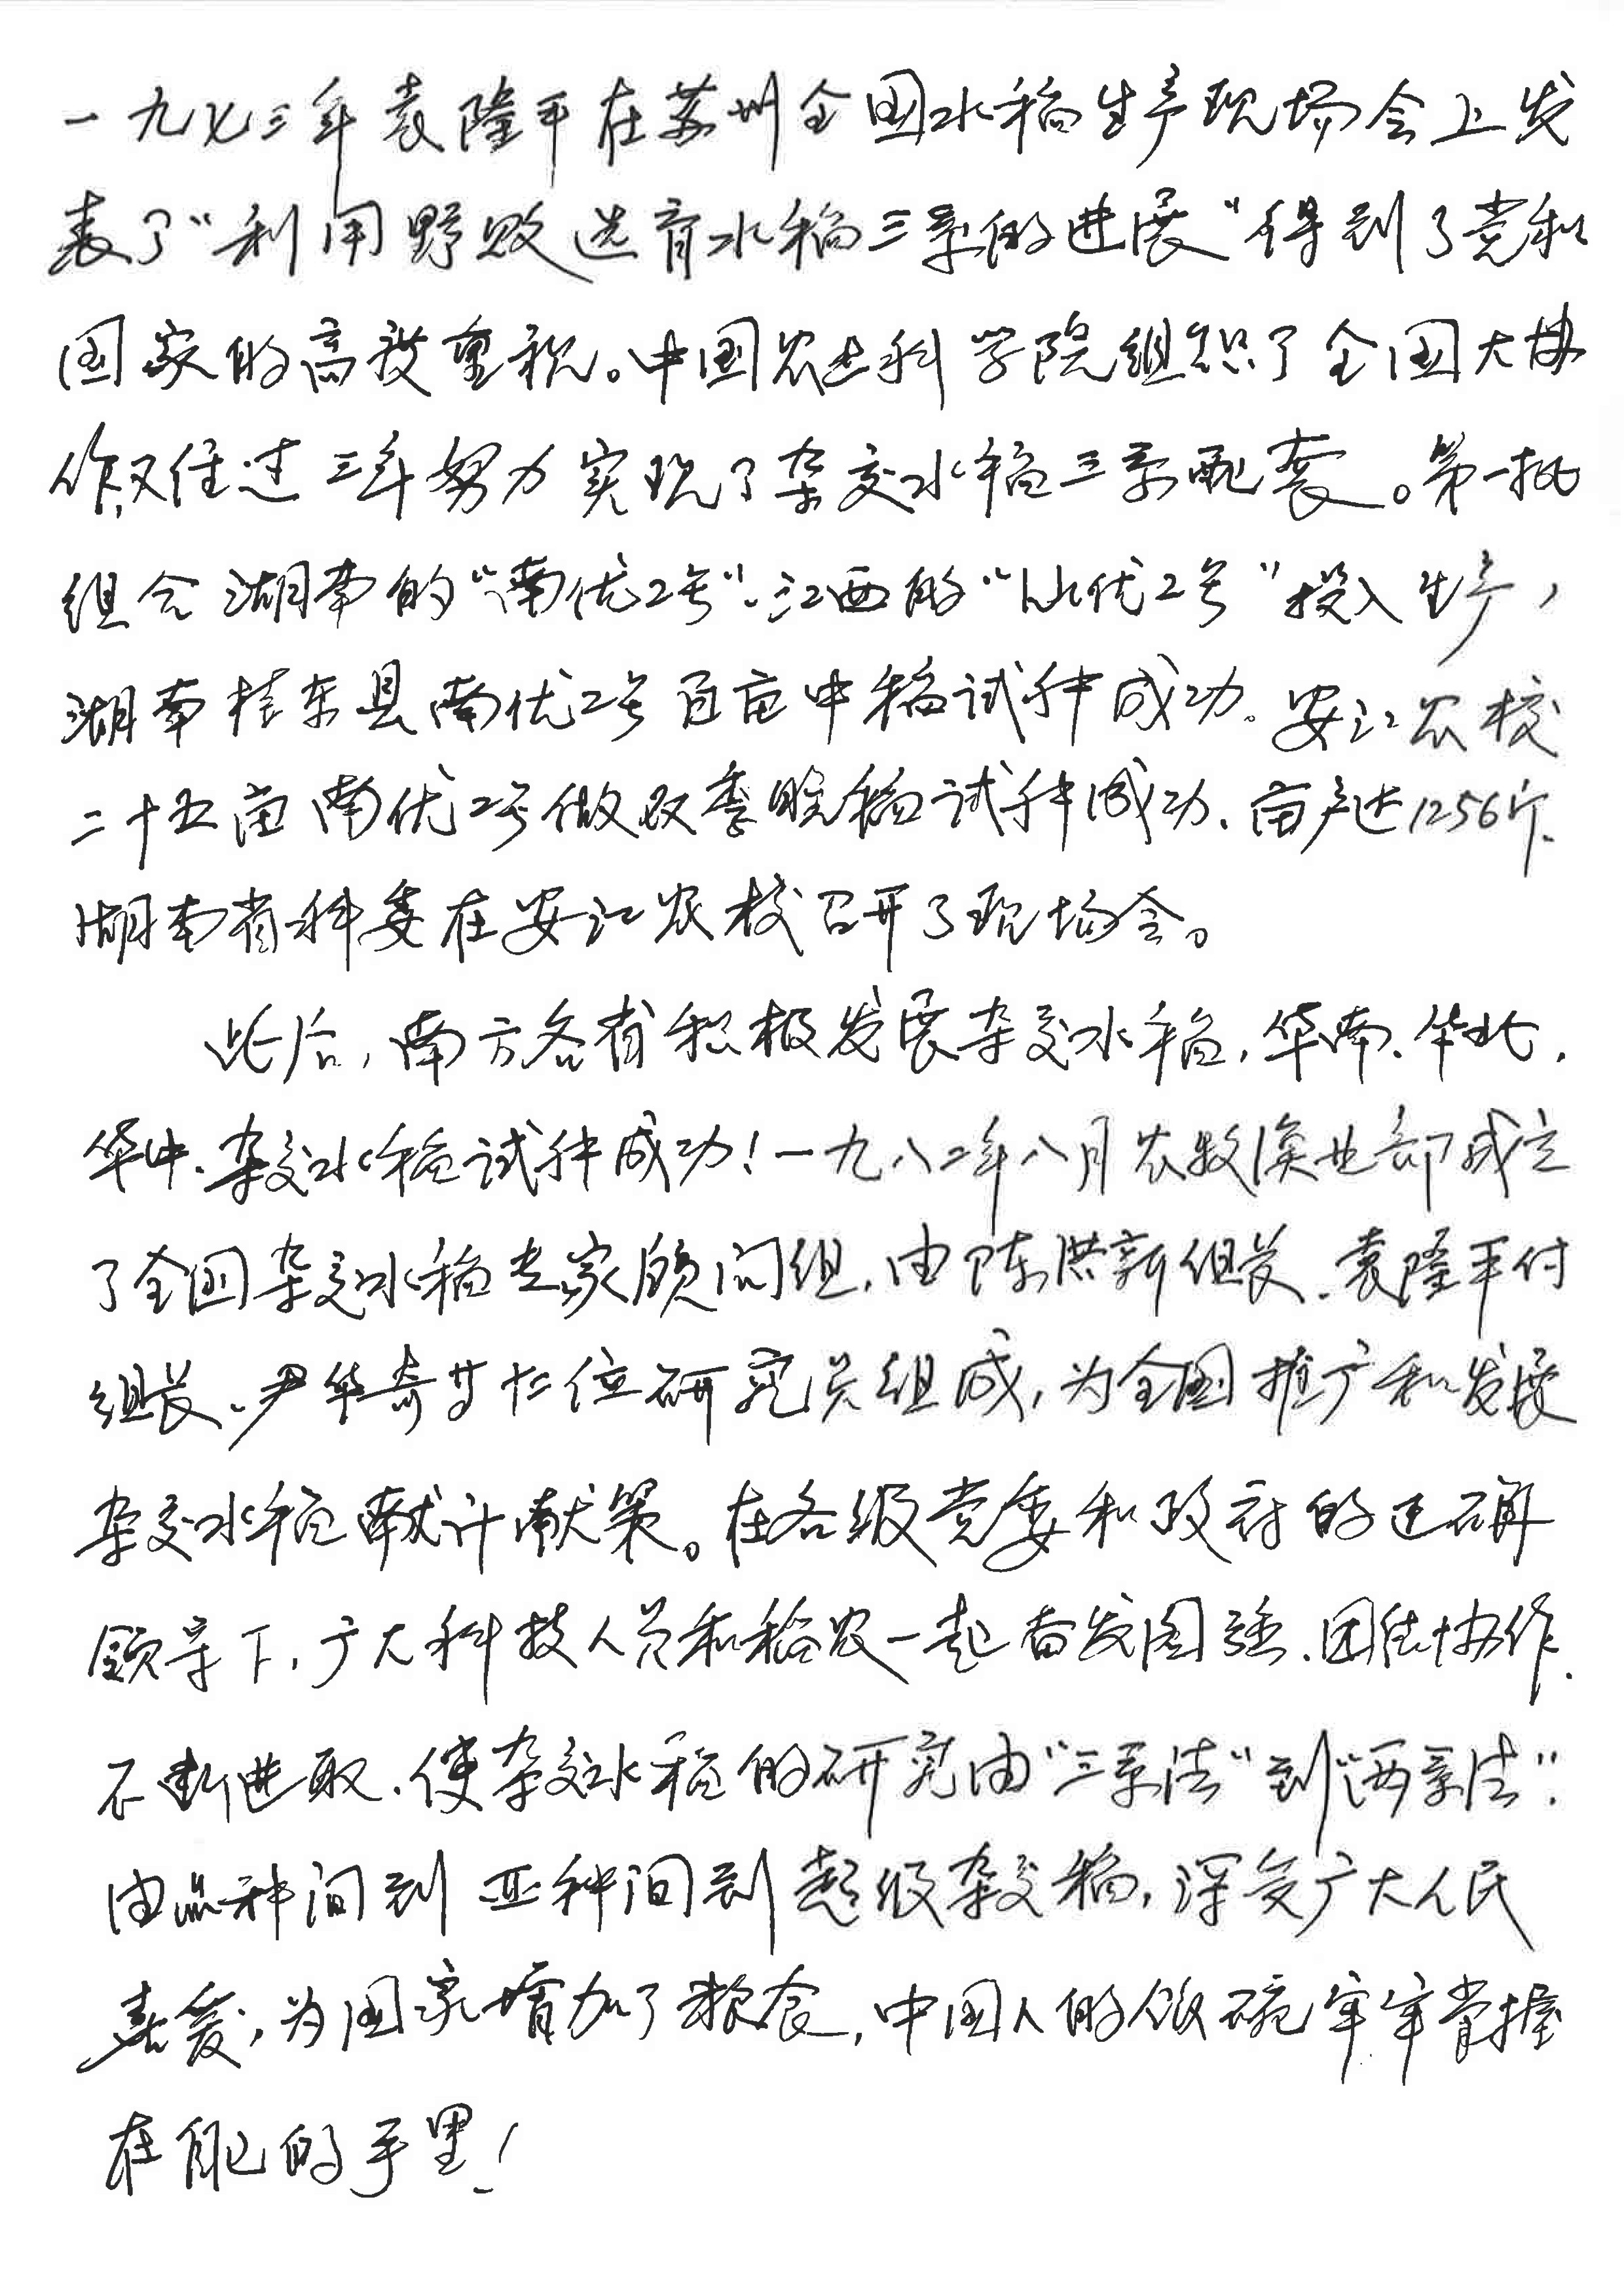 一九七三年袁隆平在苏州全国水稻生产现场会上发
表了“利用野败选育水稻三系的进展”得到了党和
国家的高度重视。中国农业科学院组织了全国大协
作,又经过三年努力实现了杂交水稻三系配套。第一批
组合湖南的“南优2号”、江西的“汕优2号”投入生产,
湖南桂东县南优2号百亩中稻试种成功。安江农校
二十五亩南优2号做双季晚稻试种成功.亩产达1256斤.
湖南省科委在安江农校召开了现场会。
此后,南方各省积极发展杂交水稻,华南、华北,
华中、杂交水稻试种成功!一九八二年八月农牧渔业部成立
了全国杂交水稻专家顾问组,由陈洪新组长、袁隆平付
组长、尹华奇等十二位研究员组成,为全国推广和发展
杂交水稻献计献策。在各级党委和政府的正确
领导下,广大科技人员和稻农一起奋发图强、团结协作、
不断进取.使杂交水稻的研究由“三系法”到“两系法”.
由品种间到亚种间到超级杂交稻,深受广大人民
喜爱,为国家增加了粮食,中国人的饭碗牢牢掌握
在自己的手里!